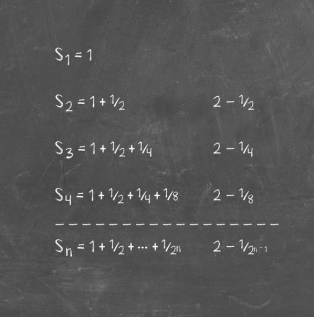 S₁ = 1
S₂ = 1 + 1/2 2 - 1/2
S₃ = 1 + 1/2 + 1/4 2 - 1/4
S₄ = 1 + 1/2 + 1/4 + 1/8 2 - 1/8
Sₙ = 1 + 1/2 + ... + 1/2n 2 - 1/2n-1